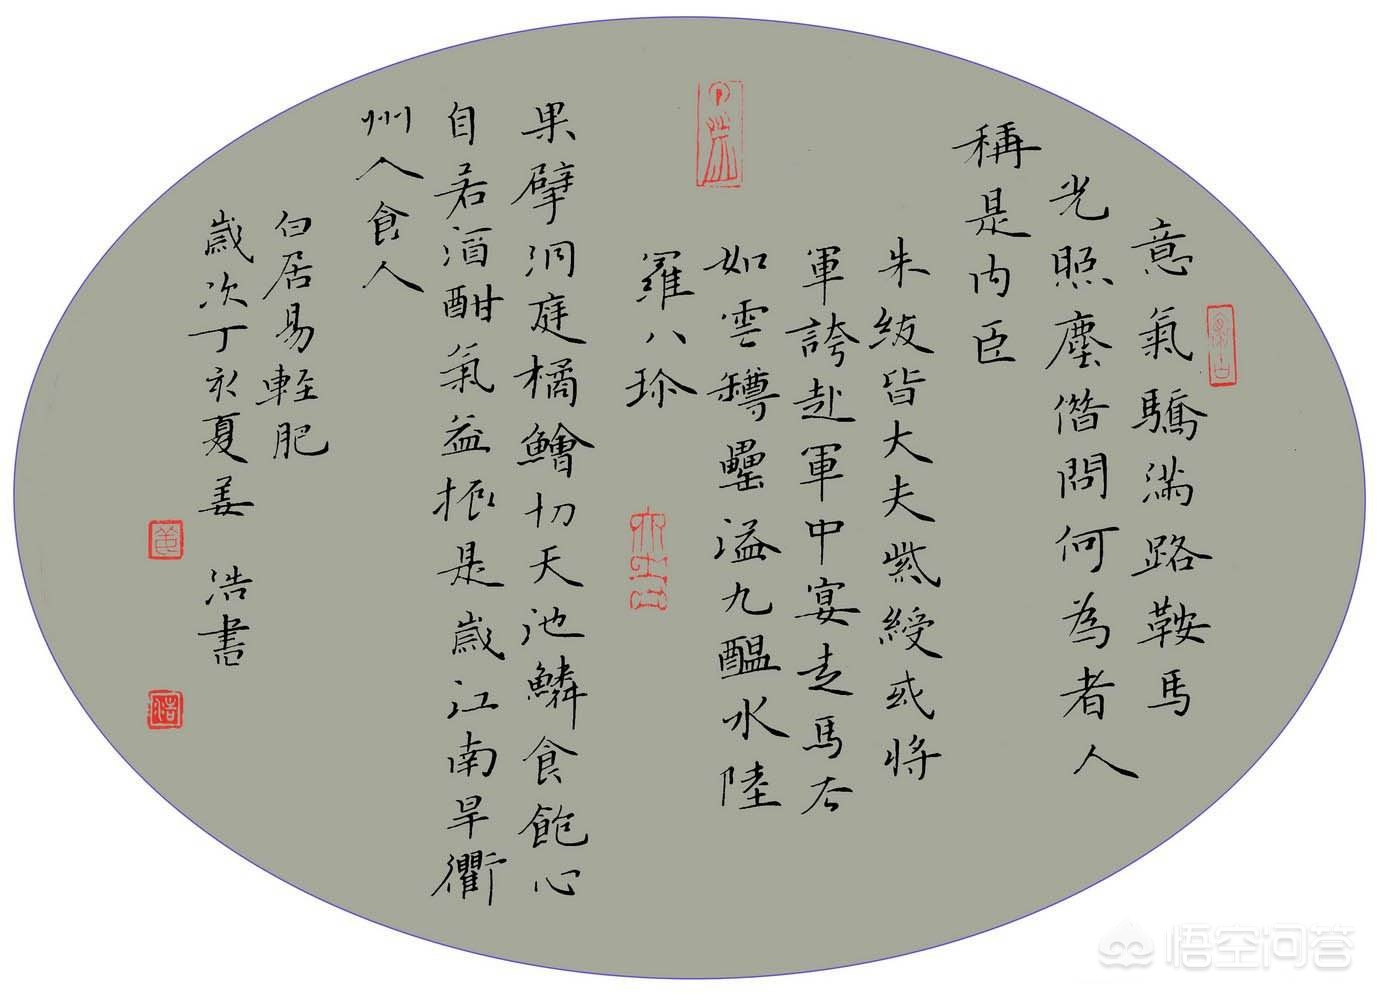 意氣驕滿路鞍馬
光照塵借問何為者人
稱是内臣
朱紱皆大夫紫綬或將
軍誇赴軍中宴走馬去
如雲罇罍溢九醞水陸
羅八珍
果擘洞庭橘鱠切天池鱗食飽心
自若酒酣氣益振是歲江南旱衢
州人食人
白居易輕肥
歲次丁亥夏姜浩書
悟空问答